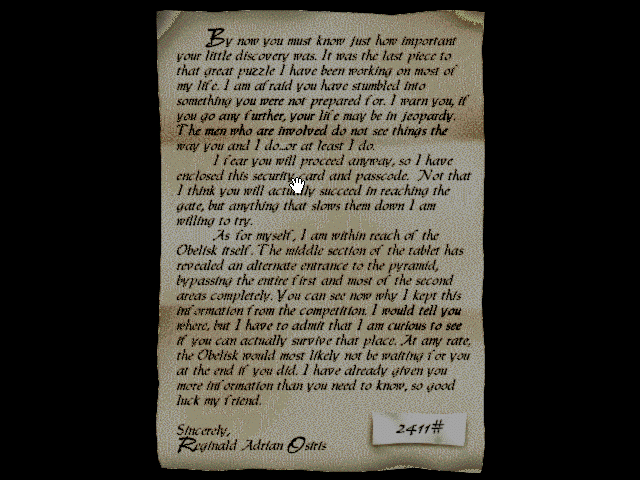 By now you must know just how important
your little discovery was. It was the last piece to
that great puzzle I have been working on most of
my life. I am afraid you have stumbled into
something you were not prepared for. I warn you, if
you go any further, your life may be in jeopardy.
The men who are involved do not see things the
way you and I do...or at least I do.
I fear you will proceed anyway, so I have
enclosed this security card and passcode. Not that
I think you will actually succeed in reaching the
gate, but anything that slows them down I am
willing to try.
As for myself, I am within reach of the
Obelisk itself. The middle section of the tablet has
revealed an alternate entrance to the pyramid,
bypassing the entire first and most of the second
areas completely. You can see now why I kept this
information from the competition. I would tell you
where, but I have to admit that I am curious to see
if you can actually survive that place. At any rate,
the Obelisk would most likely not be waiting for you
at the end if you did. I have already given you
more information than you need to know, so good
luck my friend.
Sincerely,
Reginald Adrian Osiris
2411#